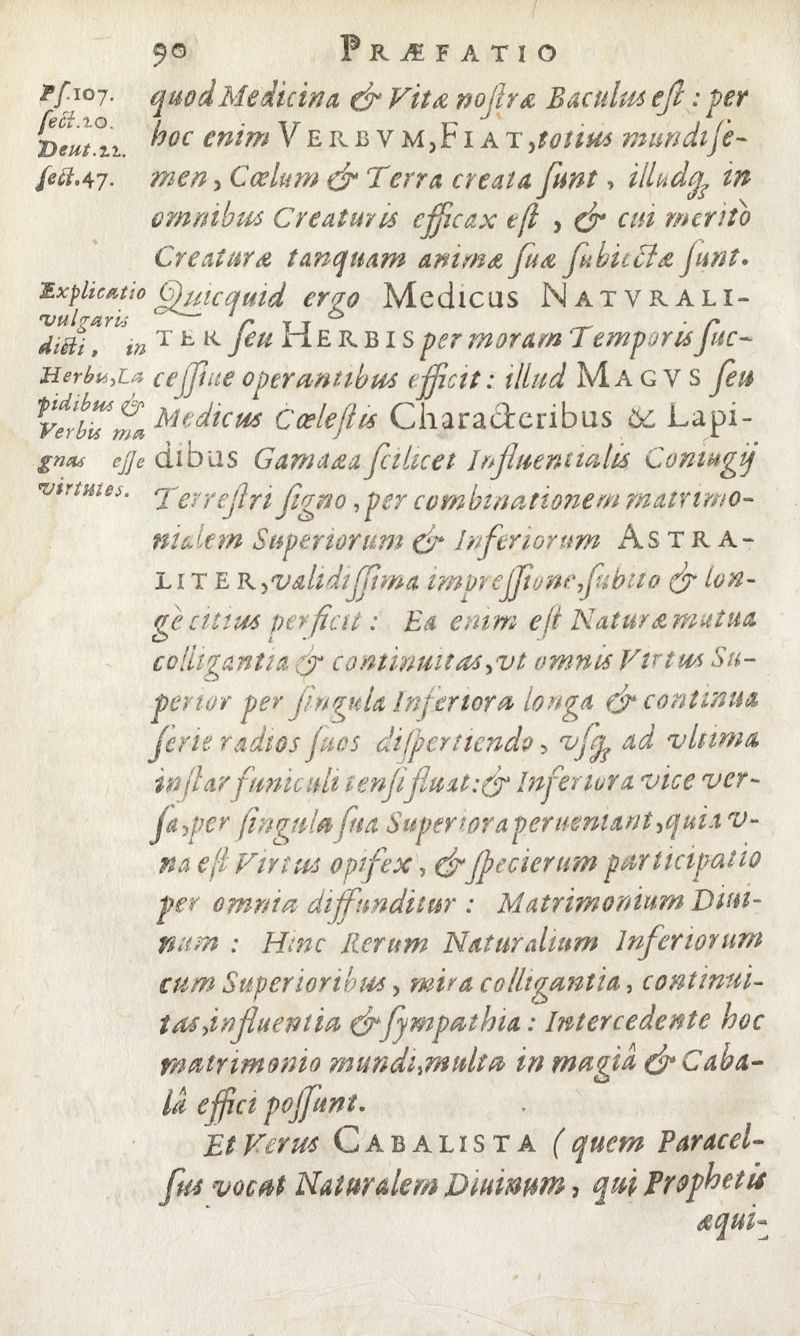 90 PRÆFATIO
Pſ.107.
ſect.20.
Deut.22.
ſect.47.
quod Medicina & Vitæ noſtræ Baculus eſt : per
hoc enim VERBVM, FIAT, totius mundi ſe-
men, Cœlum & Terra creata ſunt, illudq́ꝫ in
omnibus Creaturis efficax eſt , & cui meritò
Creaturæ tanquam animæ ſuæ ſubiectæ ſunt.
Explicatio
vulgaris
dicti, in
Herbis, La
pidibus &
Verbis ma
gnas eſſe
virtutes.
Quicquid ergo Medicus NATVRALI-
TER ſeu HERBIS per moram Temporis ſuc-
ceſſiue operantibus efficit : illud MAGVS ſeu
Medicus Cœleſtis Characteribus & Lapi-
dibus Gamaæa ſcilicet Influentialis Coniugij
Terreſtri ſigno, per combinationem matrimo-
nialem Superiorum & Inferiorum ASTRA-
LITER, validiſſima impreſſione, ſubito & lon-
gè citius perficit : Ea enim eſt Naturæ mutua
colligantia & continuitas, vt omnis Virtus Su-
perior per ſingula Inferiora longa & continua
ſerie radios ſuos diſpertiendo, vſq́ꝫ ad vltima
inſtar funiculi tenſi fluat : & Inferiora vice ver-
ſa, per ſingula ſua Superiora perueniant, quia v-
na eſt Virtus opifex, & ſpecierum participatio
per omnia diffunditur : Matrimonium Diui-
num : Hinc Rerum Naturalium Inferiorum
cum Superioribus, mira colligantia, continui-
tas, influentia & ſympathia : Intercedente hoc
matrimonio mundi, multa in magiâ & Caba-
lâ effici poſſunt.
Et Verus CABALISTA (quem Paracel-
ſus vocat Naturalem Diuinum, qui Prophetis
æqui-